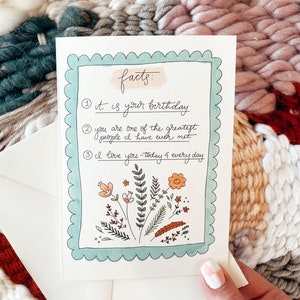 facts:
① it is your birthday
② you are one of the greatest
people I have ever met
③ I love you - today & everyday